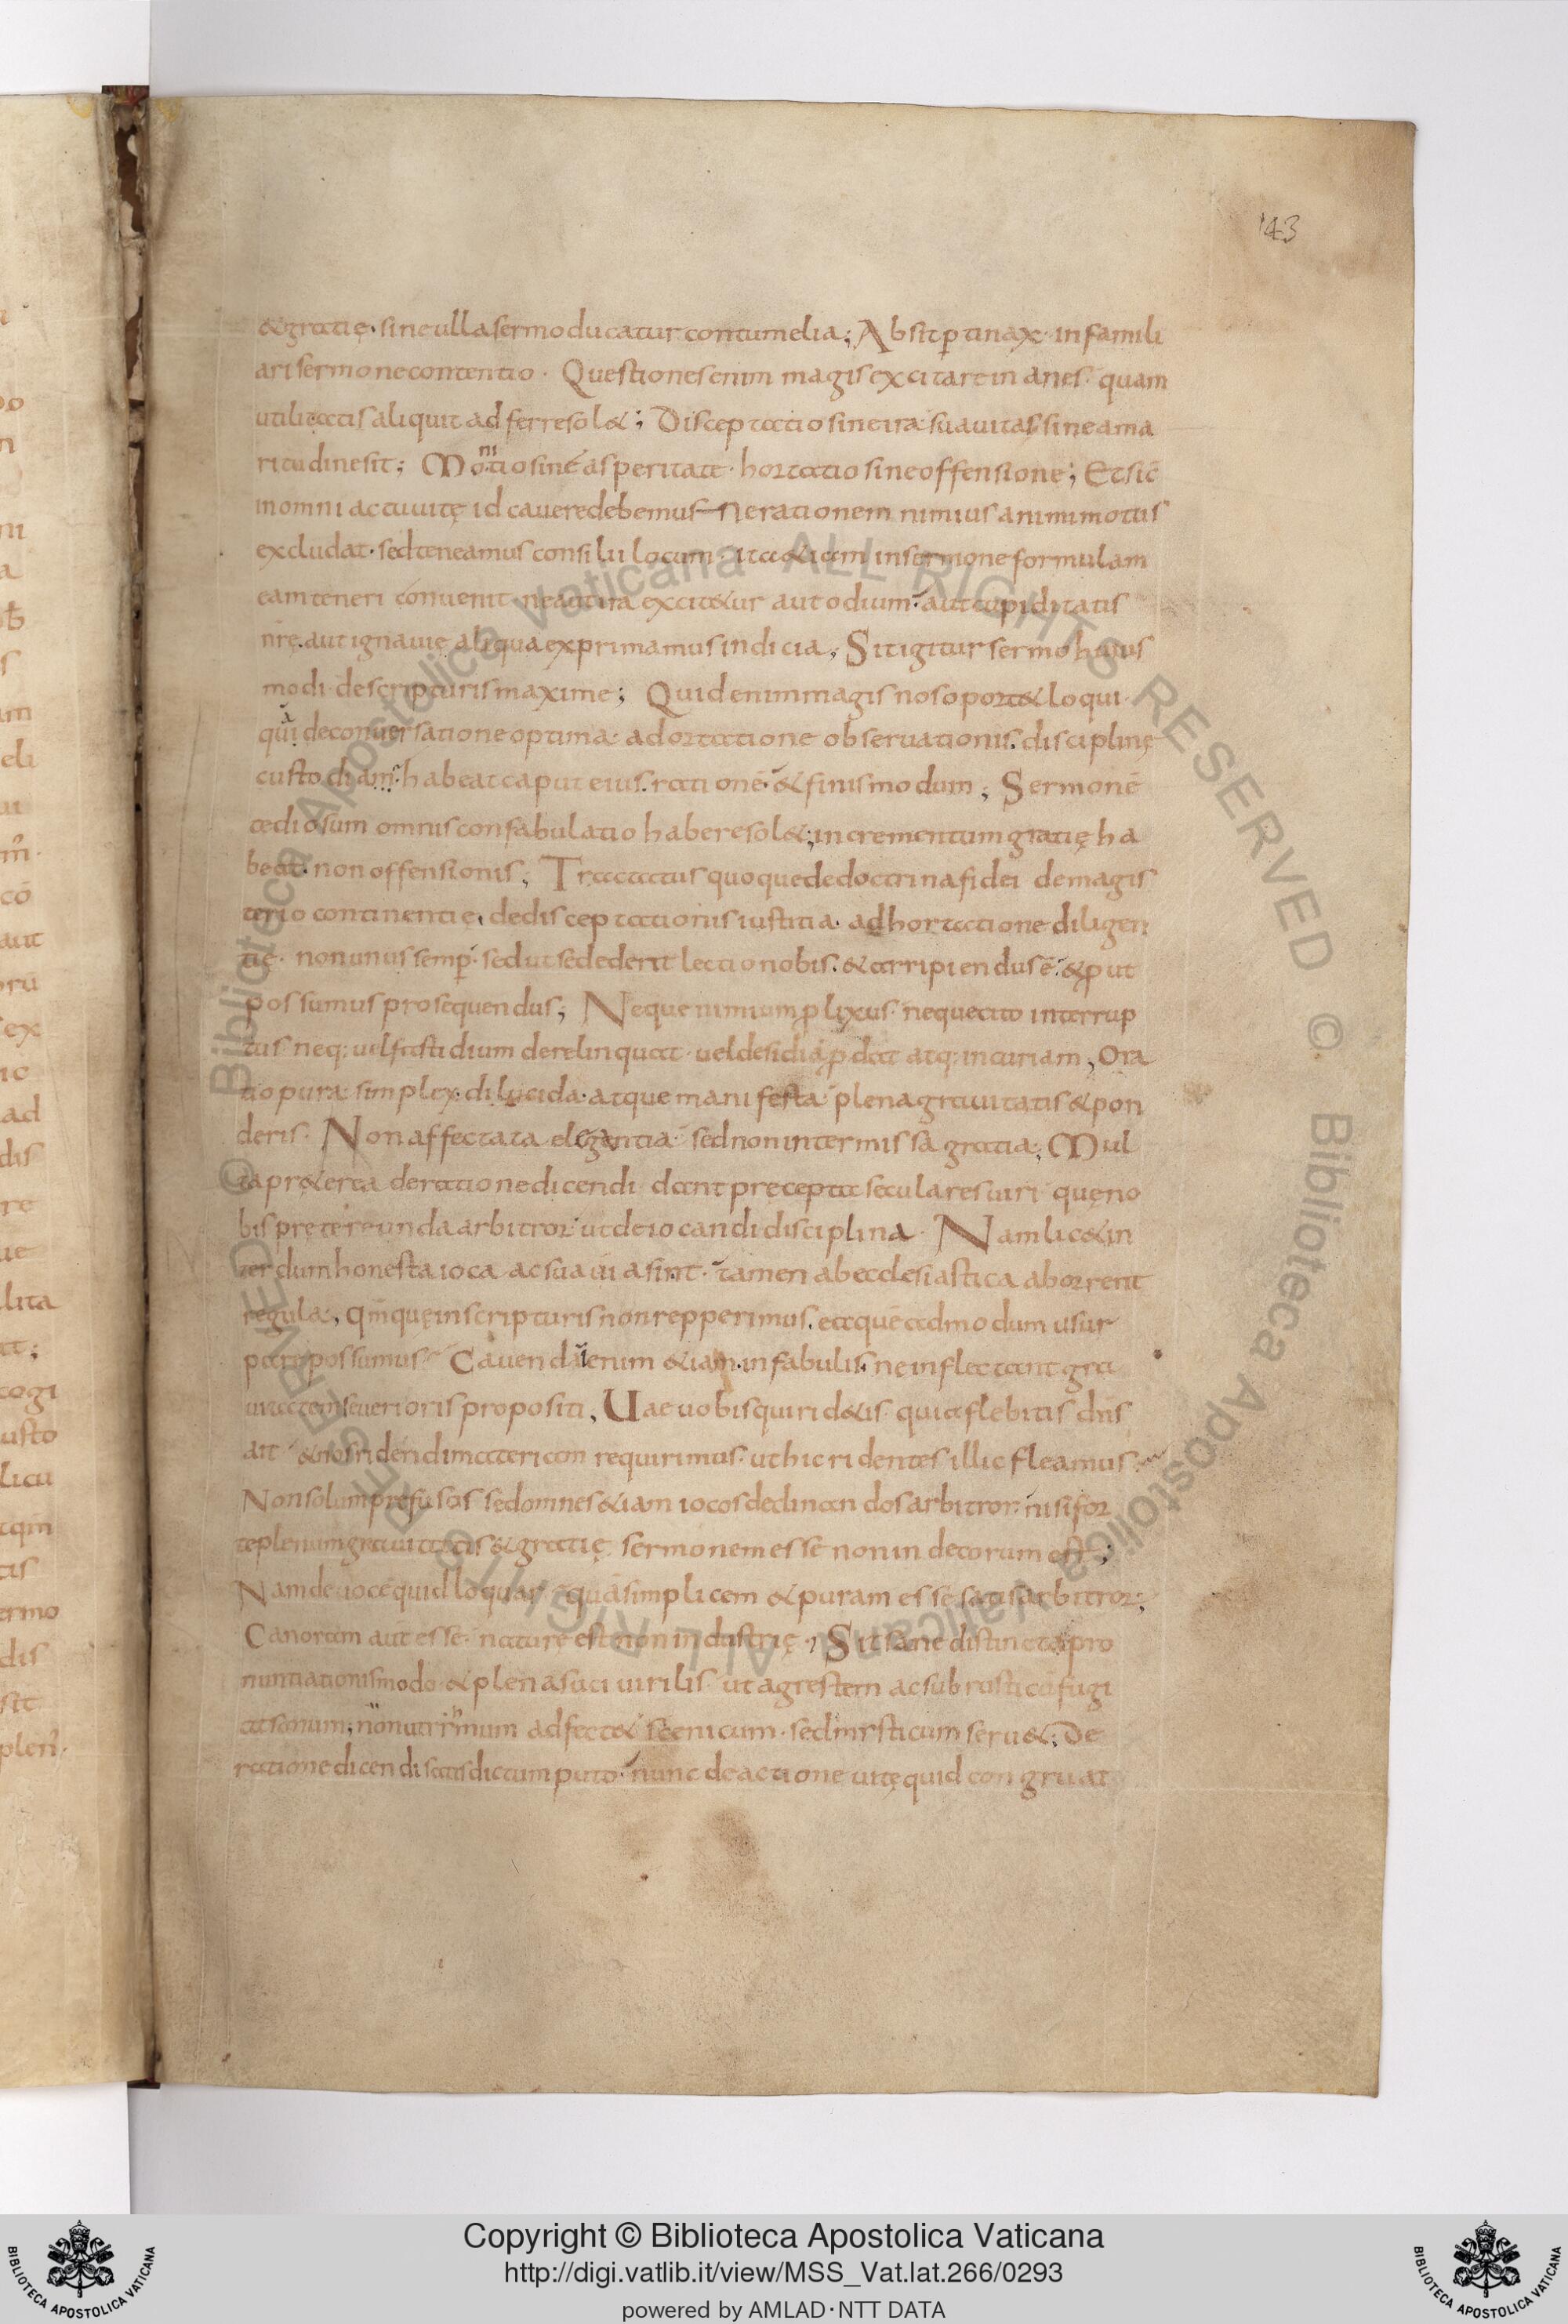 143
&gratię· sineulla sermo ducatur contumelia; Absit ptinax· infamili
ari sermone contentio· Questiones enim magis excitare inanes· quam
utilitatis aliquit adferre sol&; Disceptatio sine ira· suauitas sine ama
ritudine sit; Monitio sine asperitate· hortatio sine offensione; Et sic
in omni actu uitę id cauere debemus ne rationem nimius animi motus
excludat· sed teneamus consilii locum· ita &iam in sermone formulam
eam teneri conuenit· ne aut ira excit&ur aut odium· aut cupiditatis
nrę· aut ignauię aliqua exprimamus indicia; Sit igitur sermo huius
modi· de scripturis maxime; Quid enim magis nos oport& loqui·
quā de conuersatione optima· adortatione obseruationis· disciplinę
custodiam· habeat caput eius· rationē· & finis modum; Sermonē
tediosum omnis confabulatio habere sol&; incrementum gratię ha
beat· non offensionis; Tractatus quoque de doctrina fidei de magis
terio continentię, de disceptationis iustitia· adhortatione diligen
tię· non unus semp· sed ut se dederit lectio nobis· & arripiendus ē· & put
possumus prosequendus; Neque nimium plixus· neque cito interrup
tus neq; uel fastidium derelinquat· uel desidiā pdat atq; incuriam, Ora
tio pura· simplex· dilucida· atque manifesta· plena grauitatis & pon
deris· Non affectata elegantia· sed non intermissa gratia; Mul
ta pr&erea de ratione dicendi dant precepta seculares uiri quę no
bis pretereunda arbitror· ut de iocandi disciplina· Nam lic& in
terdum honesta ioca ac suauia sint· tamen ab ecclesiastica aborrent
regula, qm̄ quę in scripturis non repperimus, ea quē admodum usur
pare possumus· Cauendū enim &iam· in fabulis, ne inflectant gra
uitatem seuerioris propositi, Uae uobis qui rid&is quia flebitis dn̄s
ait· & nos ridendi materiam requirimus· ut hic ridentes illic fleamus·
Non solum profusos sed omnes &iam iocos declinandos arbitror· nisi for
te plenum grauitatis & gratię sermonem esse non indecorum est;
Nam de uoce quid loquar· quā simplicem & puram esse satis arbitror;
Canoram aut esse· naturę est non industrię; Sit sane distincta pro
nuntiationis modo & plena suci uirilis· ut agrestem ac subrusticū fugi
at sonum; non ut rithmum adfect& scenicum· sed misticum seru&; De
ratione dicendi satis dictum puto· nunc de actione uitę quid congruat
Copyright © Biblioteca Apostolica Vaticana
http://digi.vatlib.it/view/MSS_Vat.lat.266/0293
powered by AMLAD·NTT DATA
© Biblioteca Apostolica Vaticana ALL RIGHTS RESERVED © Biblioteca Apostolica Vaticana ALL RIGHTS RESERVED
BIBLIOTECA APOSTOLICA VATICANA
BIBLIOTECA APOSTOLICA VATICANA